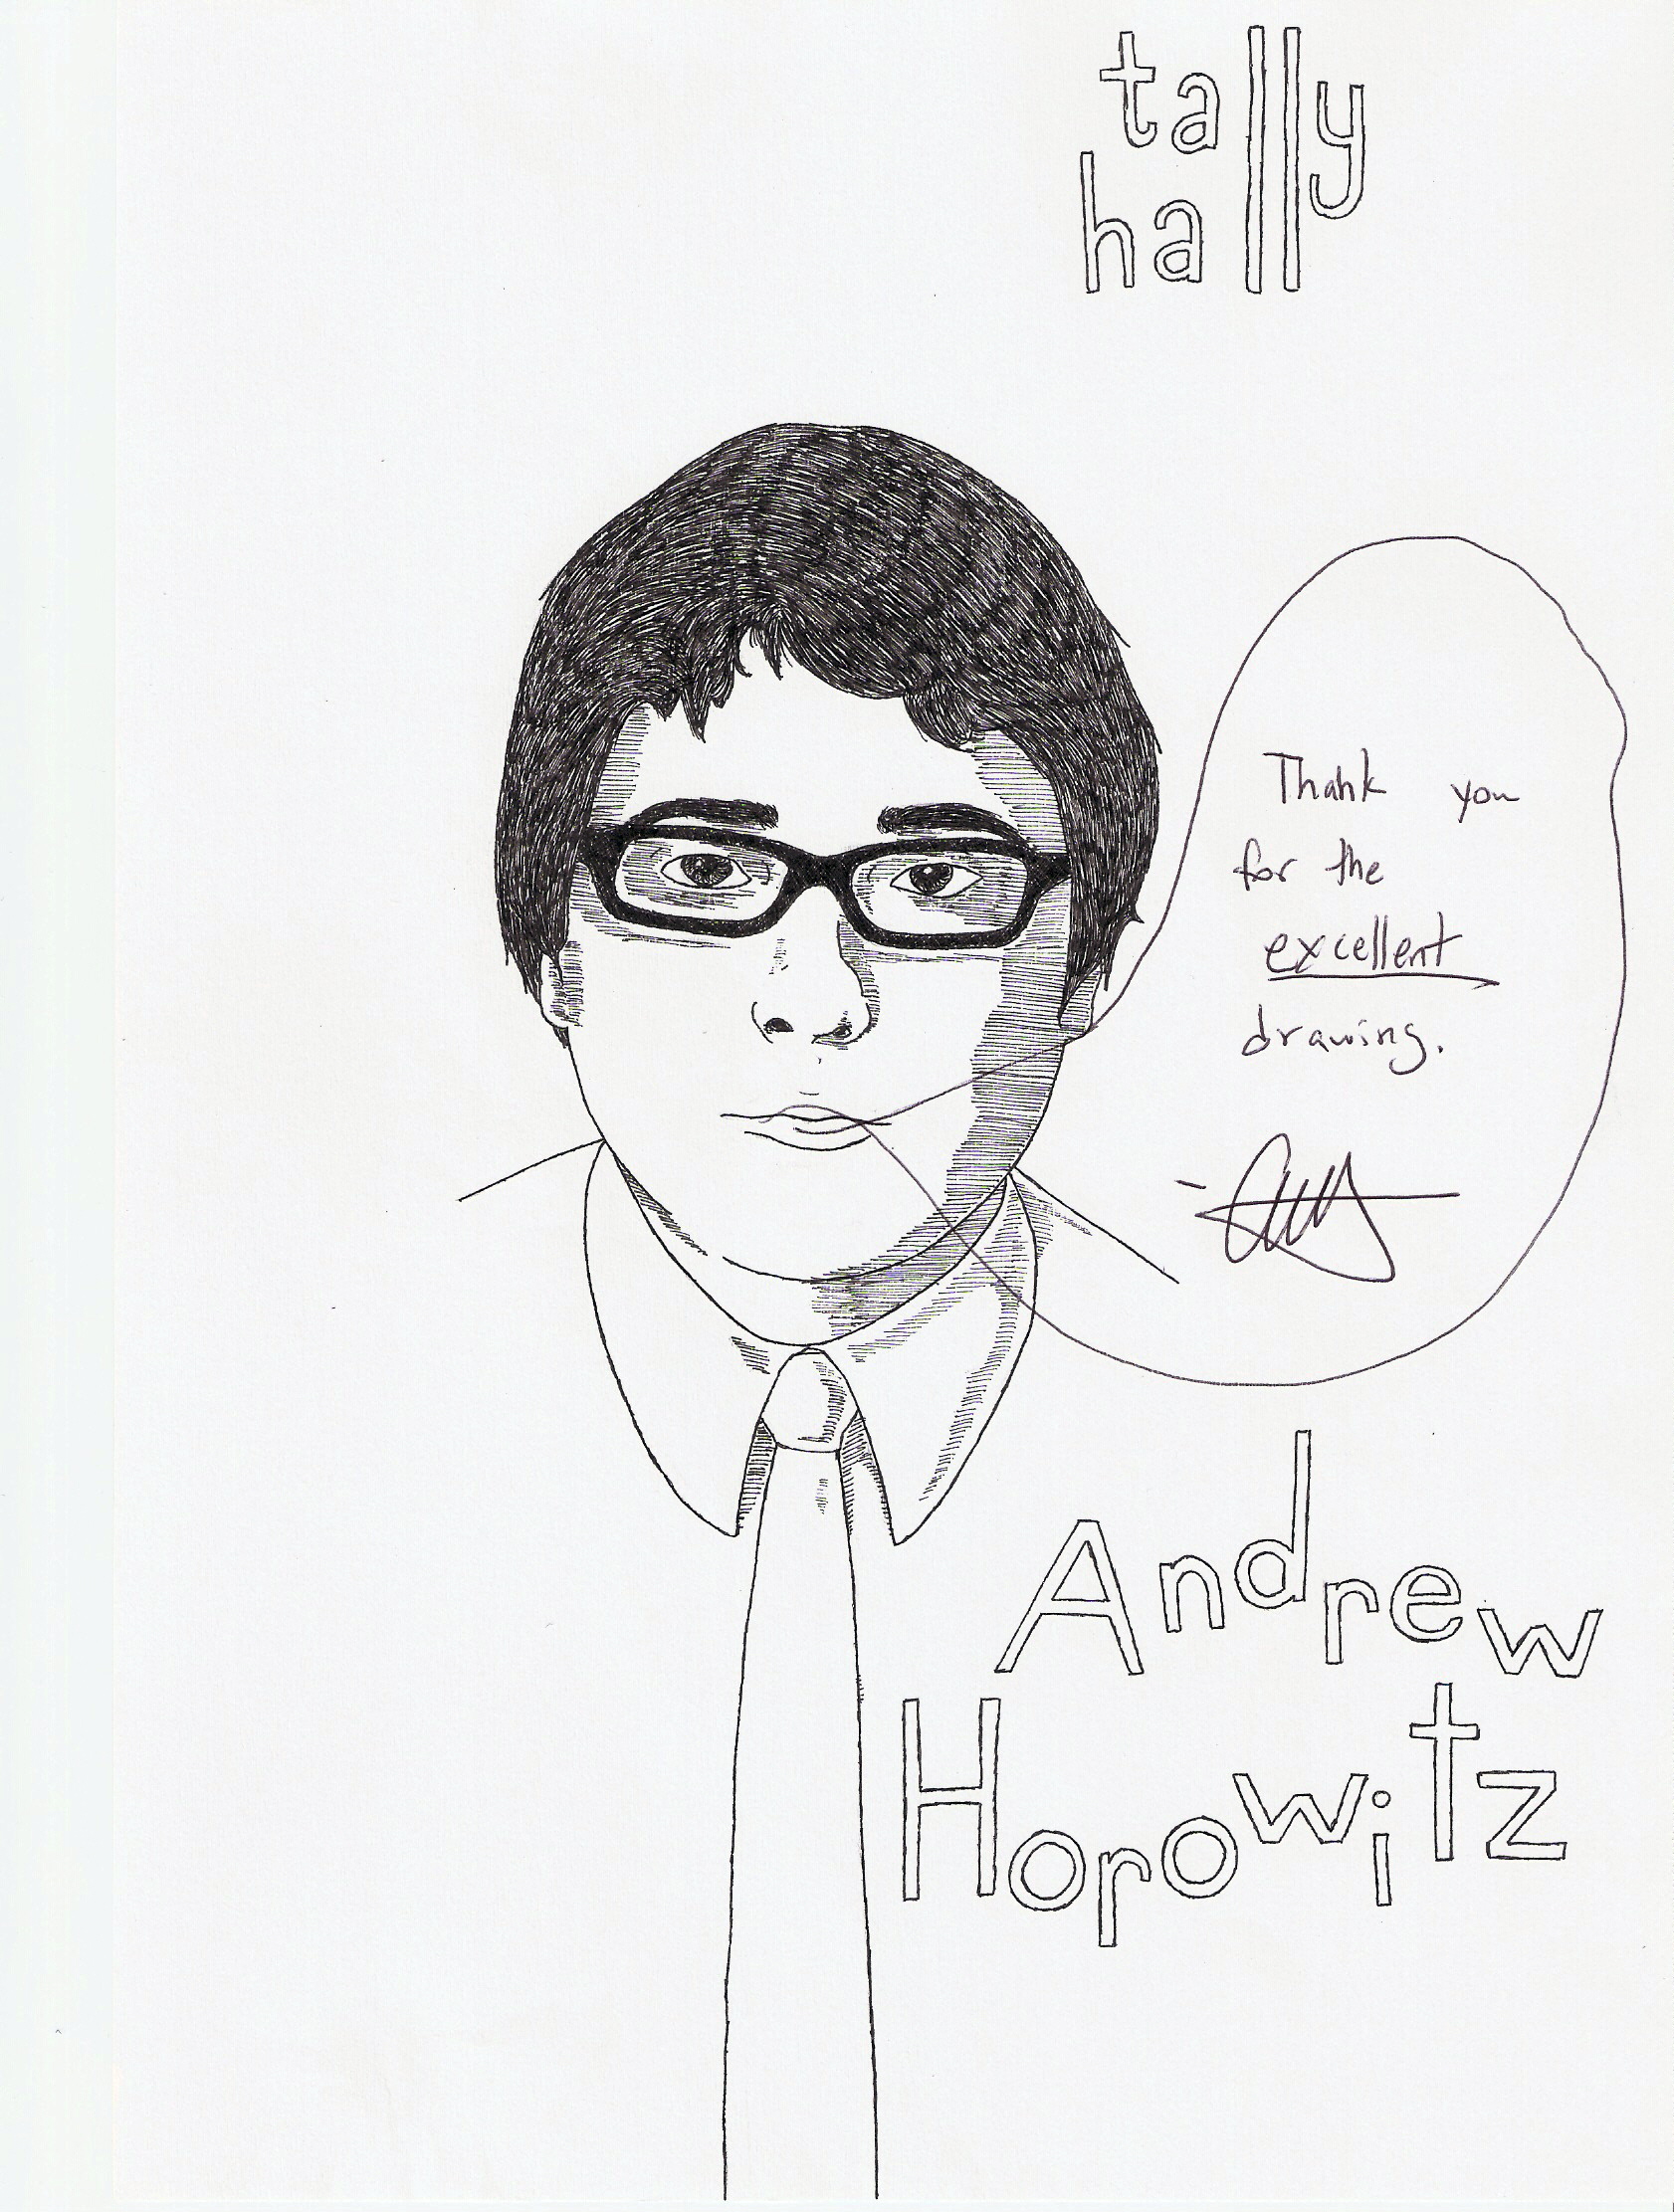 tally
hall
Thank you
for the
excellent
drawing.
Andrew
Horowitz